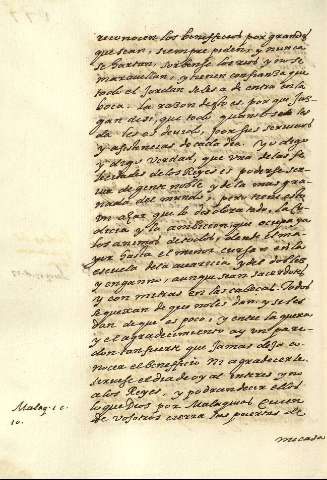 reconocen los beneficios por grandes
que sean, siempre piden, y nunca
se hartan, sorbense los rios y no se
maravillan, y tienen confianza que
todo el Jordan se les a de entrar en la
boca. La razon desto es, porque juz
gan de si, que todo quanto se les
da les es devido, por sus servicios
y asistencias de cada dia. Yo digo
y digo verdad, que una de las fe
licidades de los Reyes es poderse ser
vir de gente noble y de la mas gra
nada del mundo, pero tiene este
un azar que lo desobra todo, la co
dicia y la ambicion que ocupa ya
los animos de todos, desde el ma
yor hasta el menor cursan en la
escuela de la avaricia y del doblez
y enganno, aunque sean sacerdotes
y con mitras en las cabezas. Todos
se quexan de que no les dan, y se les
dan de que es poco, y entre la quexa
y el agradecimiento ay un pare
don tan fuerte que jamas deja co
nocer el beneficio ni agradecerle.
sirvese el dia de oy al interes y no
a los Reyes, y podran decir ellos
lo que Dios por Malaquias Quien
de vosotros cierra las puertas de
mi casa
Malaq. 1. v.
10.